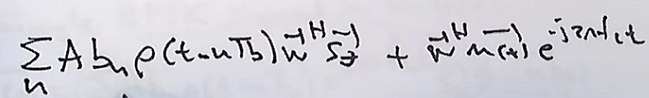 ∑ₙ A bₙ p(t-nTb) w⃗ᴴ s⃗₂ + w⃗ᴴ n⃗(t) e^{-j2πf_c t}